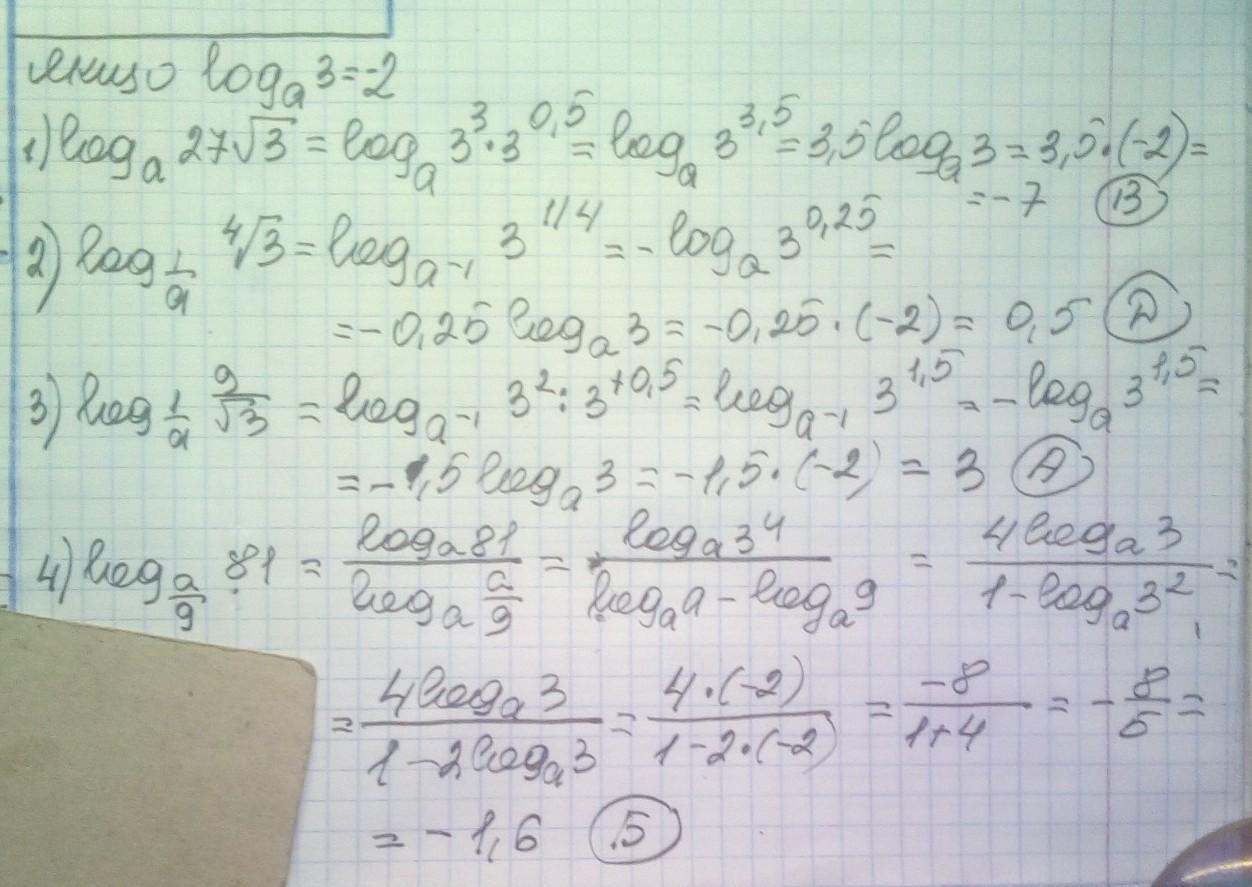 якщо log_a 3 = -2
1) log_a 27√3 = log_a 3^3 · 3^0,5 = log_a 3^3,5 = 3,5 log_a 3 = 3,5 · (-2) =
= -7 (В)
2) log_{1/a} ⁴√3 = log_{a^-1} 3^{1/4} = - log_a 3^0,25 =
= -0,25 log_a 3 = -0,25 · (-2) = 0,5 (Д)
3) log_{1/a} 9/√3 = log_{a^-1} 3^2 : 3^{+0,5} = log_{a^-1} 3^1,5 = - log_a 3^1,5 =
= -1,5 log_a 3 = -1,5 · (-2) = 3 (А)
4) log_{a/9} 81 = (log_a 81)/(log_a a/9) = (log_a 3^4)/(log_a a - log_a 9) = (4 log_a 3)/(1 - log_a 3^2) =
= (4 log_a 3)/(1 - 2 log_a 3) = (4 · (-2))/(1 - 2 · (-2)) = (-8)/(1+4) = - 8/5 =
= -1,6 (Б)